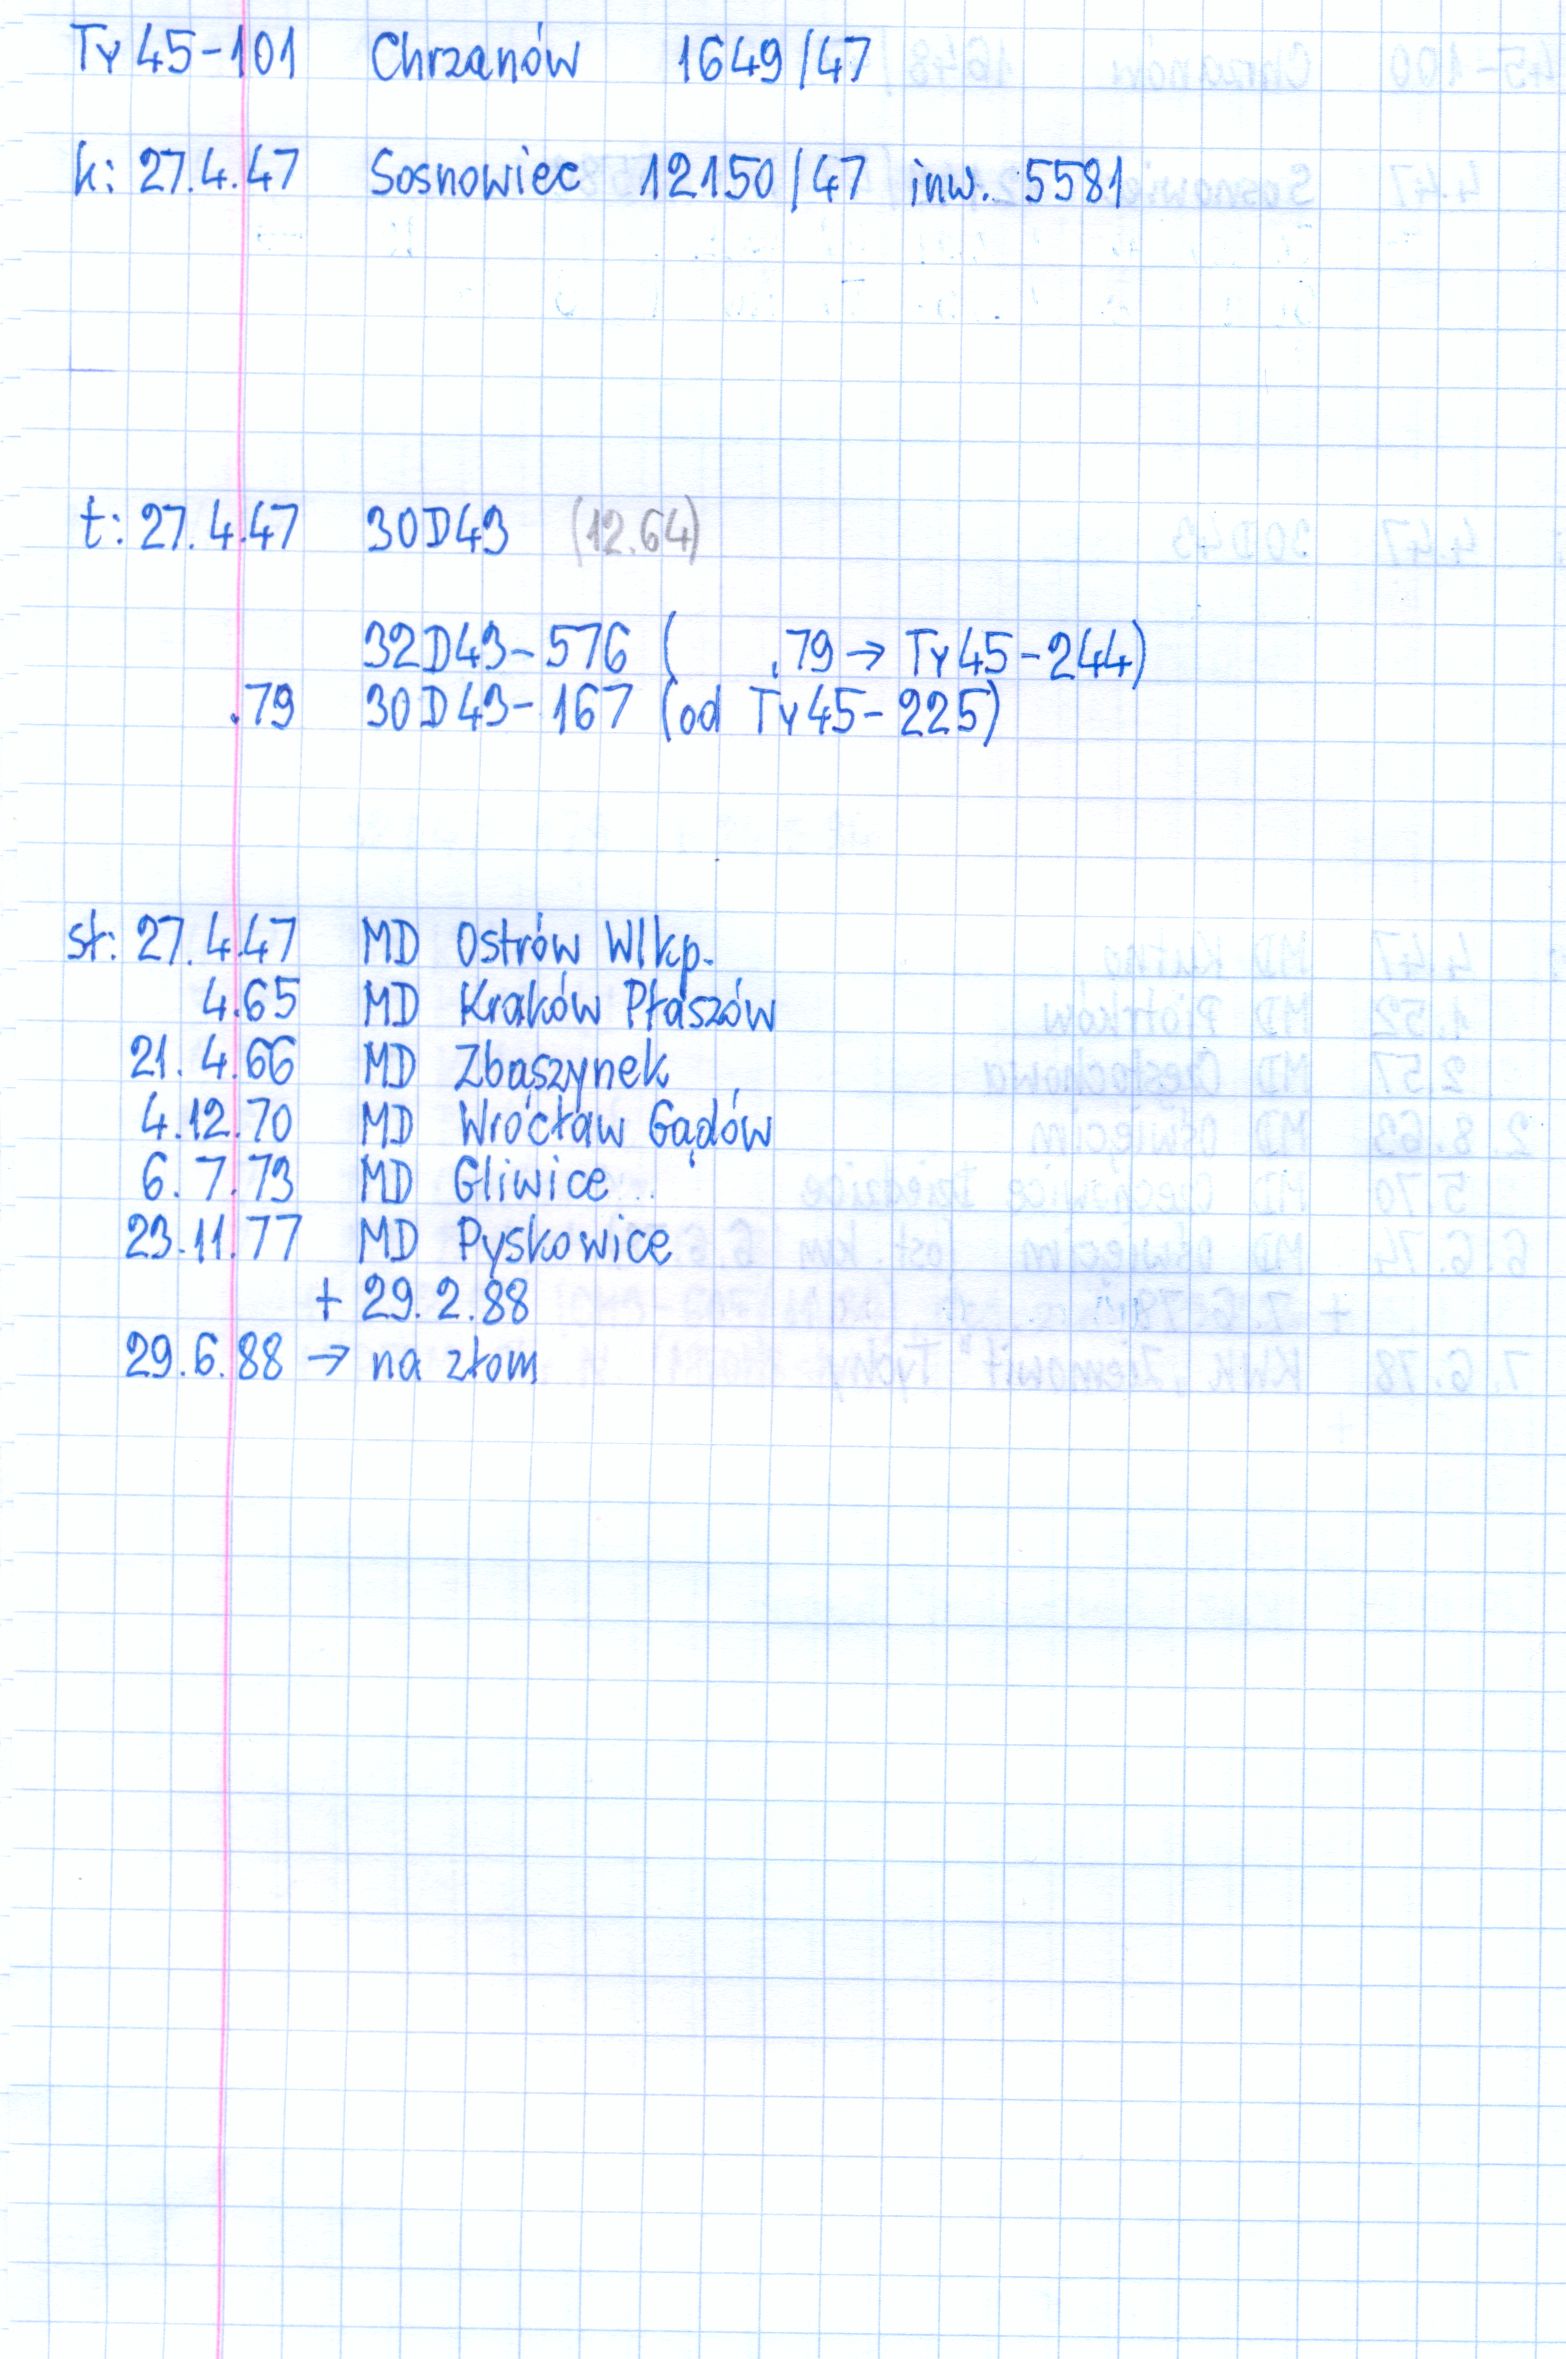 Ty45-101 Chrzanów 1649/47
k: 27.4.47 Sosnowiec 12150/47 inw. 5581
t: 27.4.47 30D43 (12.64)
32D43-576 ( .79 → Ty45-244)
.79 30D43-167 (od Ty45-225)
st: 27.4.47 MD Ostrów Wlkp.
4.65 MD Kraków Płaszów
21.4.66 MD Zbąszynek
4.12.70 MD Wrocław Gądów
6.7.73 MD Gliwice
23.11.77 MD Pyskowice
+ 29.2.88
29.6.88 → na złom